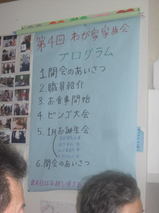 第4回 わが家家族会
プログラム
1.開会のあいさつ
2.職員紹介
3.お食事開始
4.ビンゴ大会
5.1月お誕生会
6.閉会のあいさつ